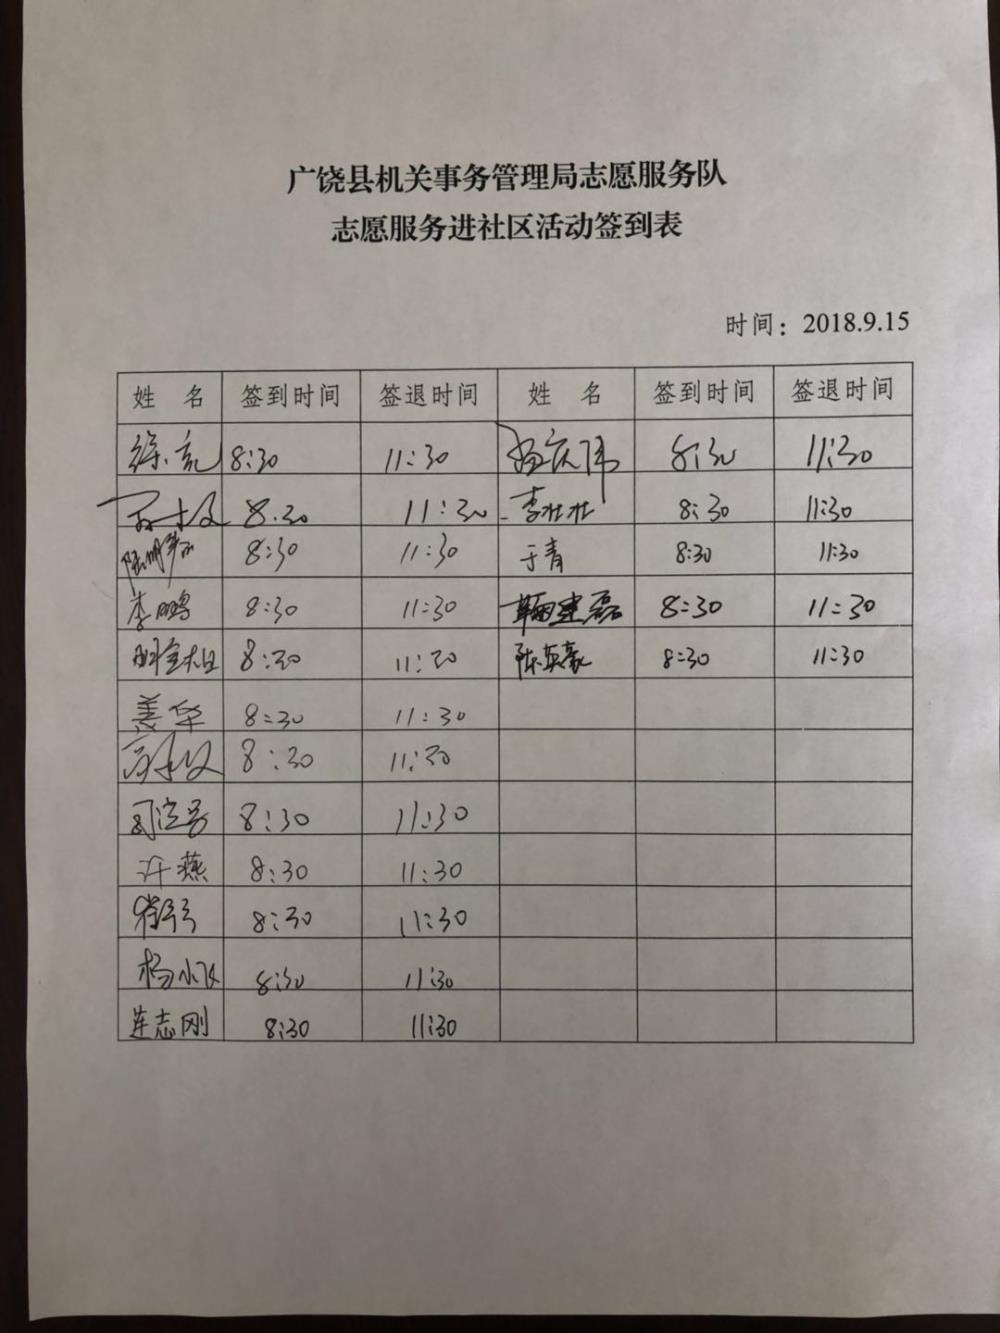 广饶县机关事务管理局志愿服务队
志愿服务进社区活动签到表
时间：2018.9.15
姓 名 签到时间 签退时间 姓 名 签到时间 签退时间
徐亮 8:30 11:30 8:30 11:30
8:30 11:30 李壮壮 8:30 11:30
8:30 11:30 于青 8:30 11:30
李鹏 8:30 11:30 建磊 8:30 11:30
8:30 11:30 陈英豪 8:30 11:30
姜华 8:30 11:30
8:30 11:30
8:30 11:30
许燕 8:30 11:30
8:30 11:30
杨小飞 8:30 11:30
连志刚 8:30 11:30